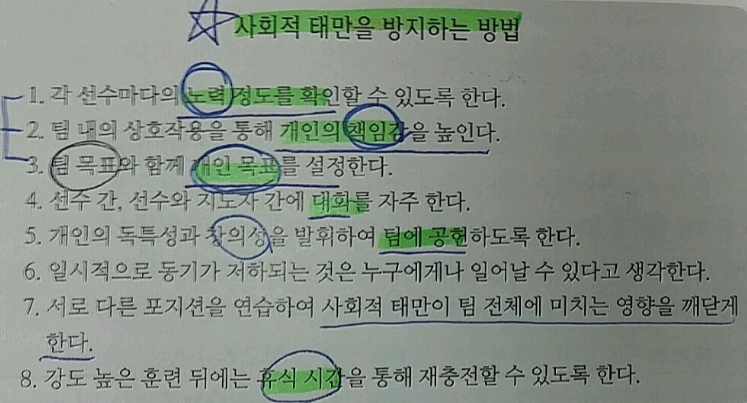 사회적 태만을 방지하는 방법
1. 각 선수마다의 노력 정도를 확인할 수 있도록 한다.
2. 팀 내의 상호작용을 통해 개인의 책임감을 높인다.
3. 팀 목표와 함께 개인 목표를 설정한다.
4. 선수 간, 선수와 지도자 간에 대화를 자주 한다.
5. 개인의 독특성과 창의성을 발휘하여 팀에 공헌하도록 한다.
6. 일시적으로 동기가 저하되는 것은 누구에게나 일어날 수 있다고 생각한다.
7. 서로 다른 포지션을 연습하여 사회적 태만이 팀 전체에 미치는 영향을 깨닫게
한다.
8. 강도 높은 훈련 뒤에는 휴식 시간을 통해 재충전할 수 있도록 한다.